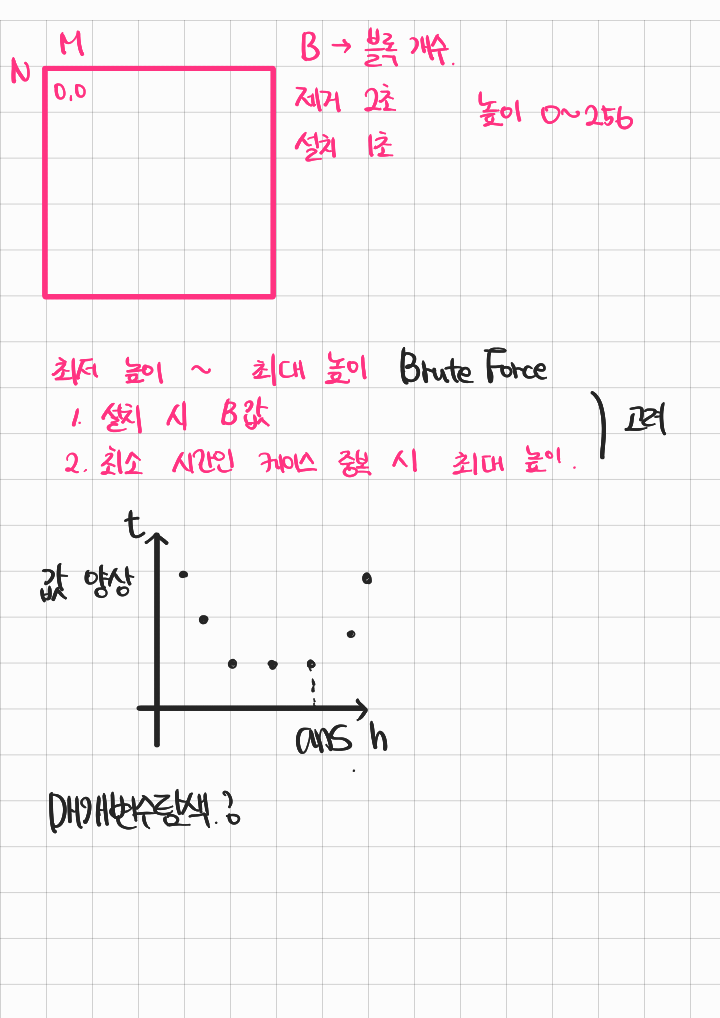 M
N
0,0
B → 블록 개수.
제거 2초
높이 0~256
설치 1초
최저 높이 ~ 최대 높이 Brute Force
1. 설치 시 B값
2. 최소 시간인 케이스 중복 시 최대 높이.
고려
t
값 양상
ans h
매개변수탐색.?